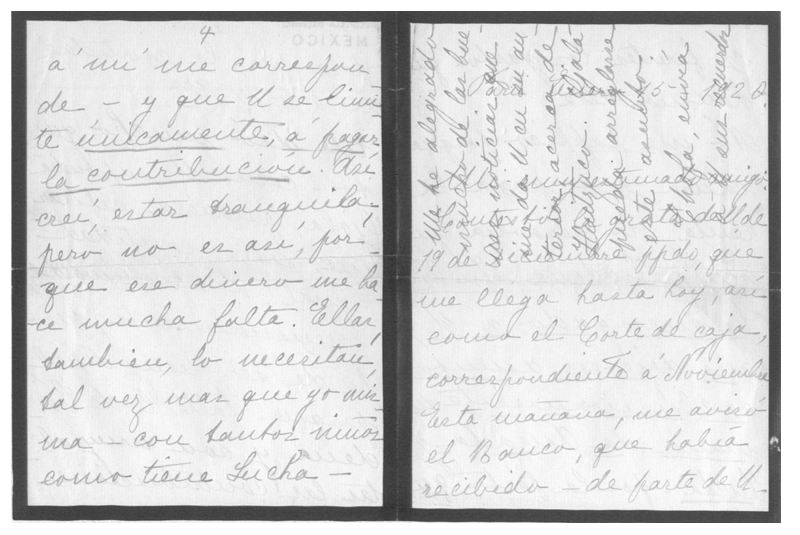 4
á mí me correspon
de - y que U se limi
te únicamente, á pagar
la contribución. Así
creí, estar tranquila,
pero no es así, por-
que ese dinero me ha-
ce mucha falta. Ellas,
tambien, lo necesitan,
tal vez, mas que yo mis
ma con tantos niños
como tiene Lucha -
MEXICO
Enero 5 192
Mi muy estimado amigo:
Contesto su grata de U de
19 de Diciembre ppdo, que
me llega hasta hoy, así
como el Corte de caja,
correspondiente á Noviembre
Esta mañana, me avisó
el Banco, que había
recibido - de parte de U.
Me he alegrado
mucho de las bue
nas noticias que
me da U, en su an
terior acerca de
Ojalá
pueda arreglarse
este asunto.
envia
á U sus recuerdos